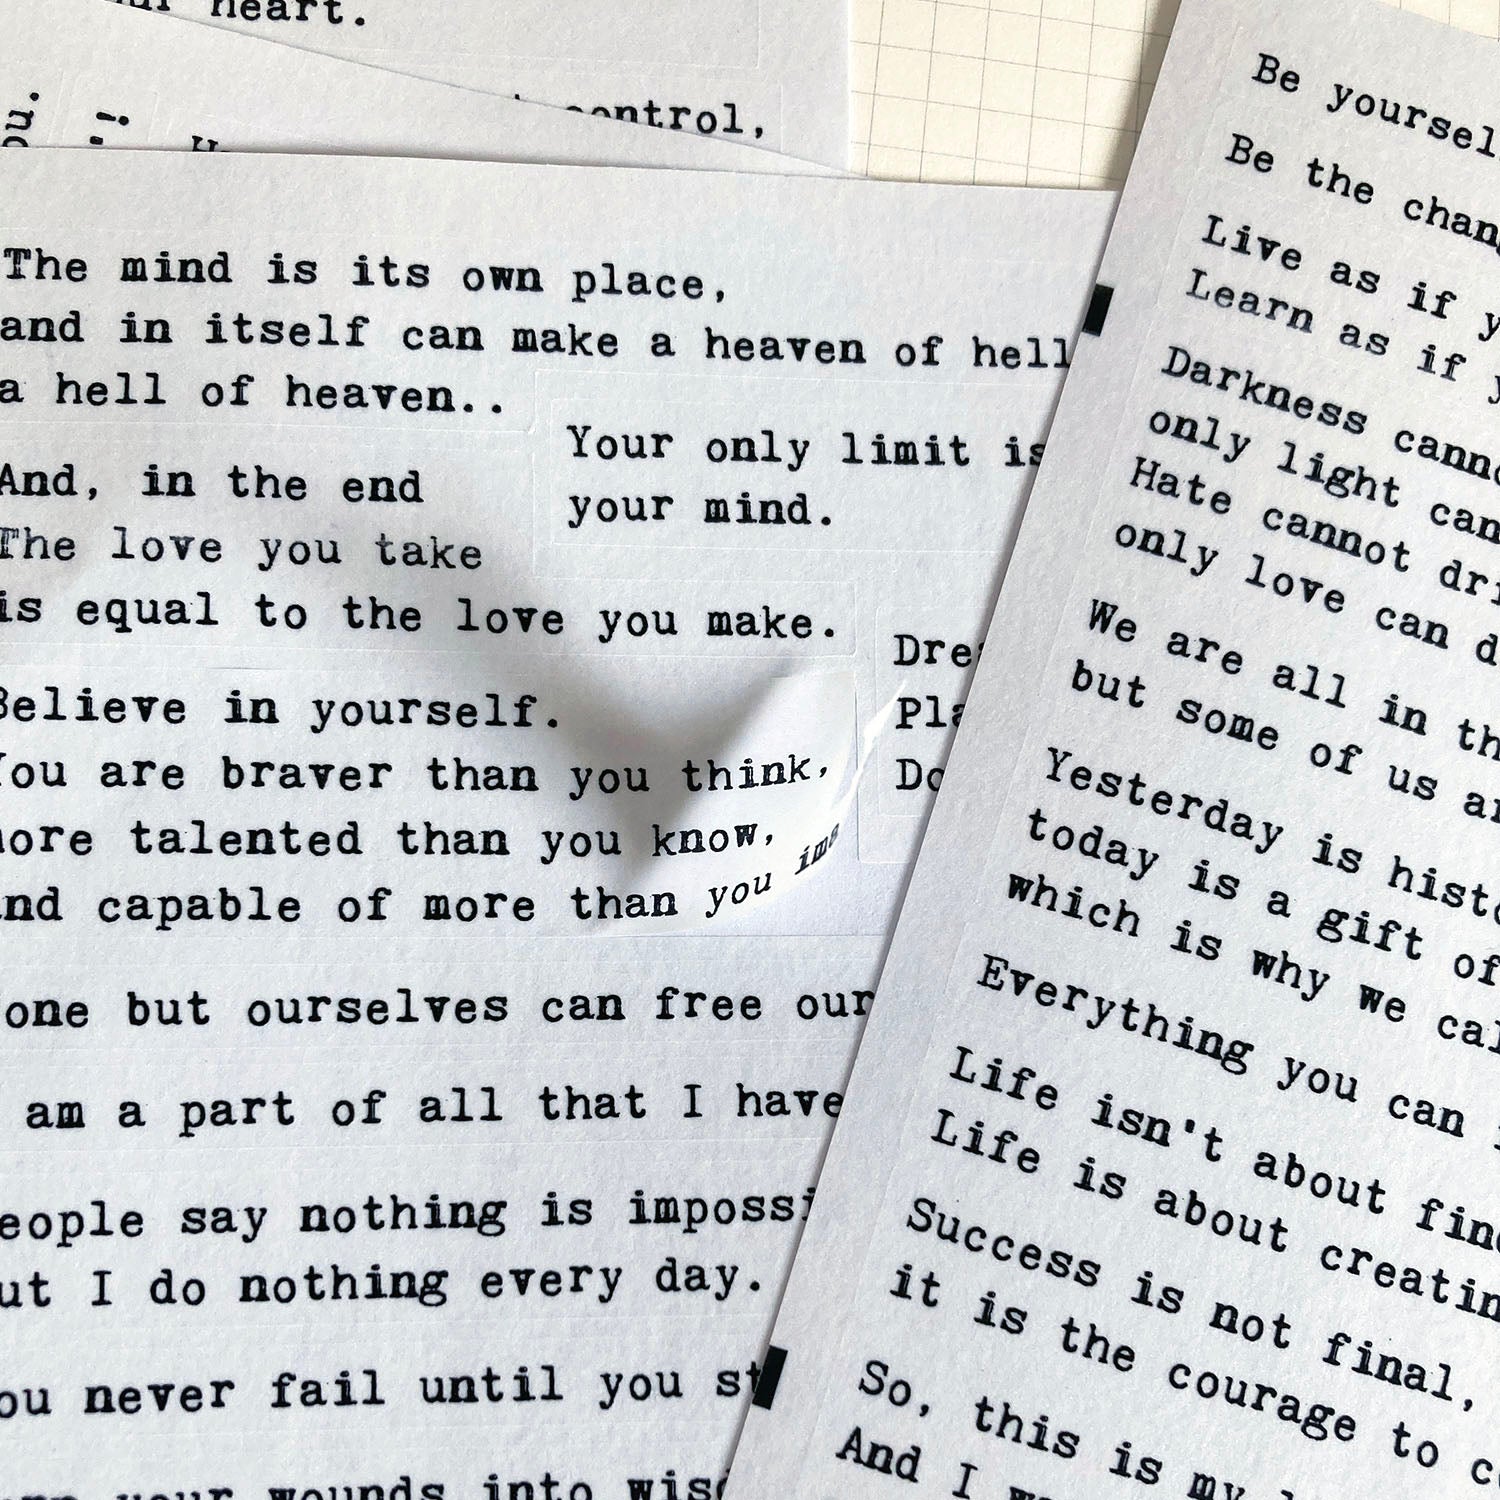 heart.
control,
The mind is its own place,
and in itself can make a heaven of hell
a hell of heaven..
Your only limit is
your mind.
And, in the end
The love you take
is equal to the love you make.
Believe in yourself.
You are braver than you think,
more talented than you know,
and capable of more than you
one but ourselves can free our
am a part of all that I have
eople say nothing is impossi
ut I do nothing every day.
ou never fail until you st
your wounds into wis
Dre
Pla
Do
Be yoursel
Be the chan
Live as if y
Learn as if y
Darkness canno
only light can
Hate cannot dri
only love can d
We are all in th
but some of us ar
Yesterday is histo
today is a gift of
which is why we cal
Everything you can
Life isn't about fin
Life is about creatin
Success is not final,
it is the courage to co
So, this is my
And I